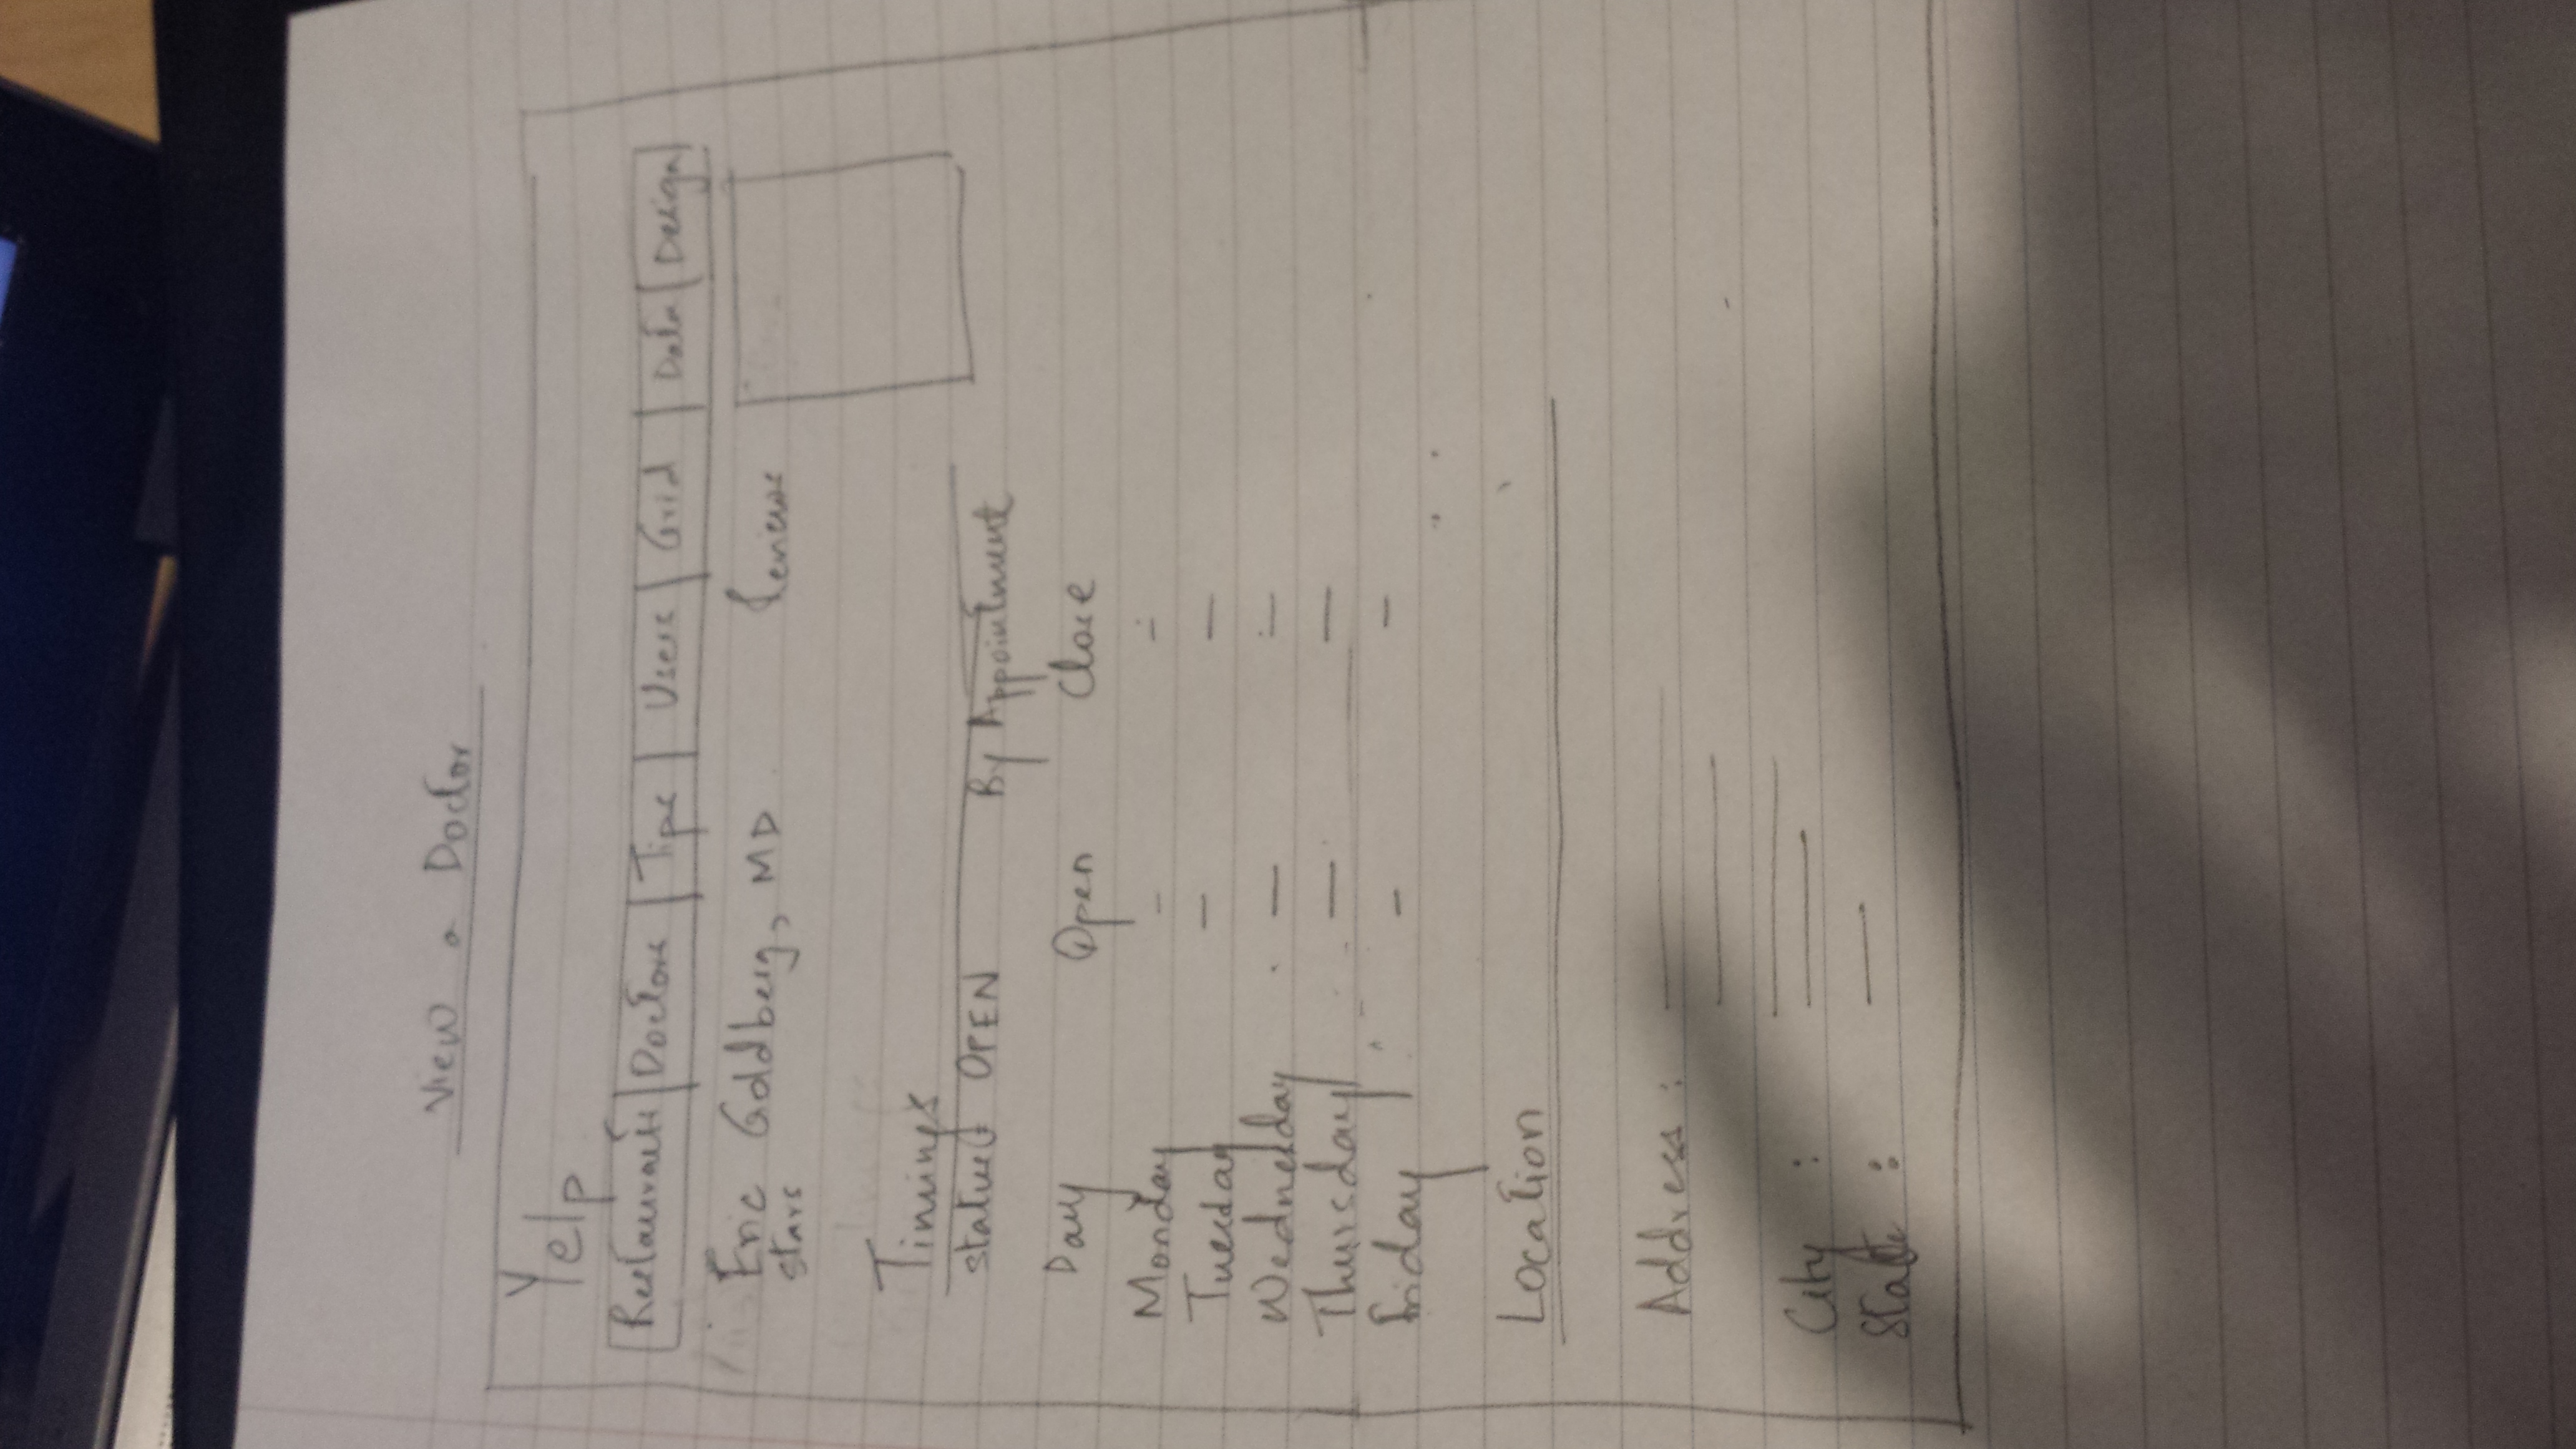 View a Doctor
Yelp
Restaurants Doctors Tips Users Grid Data Design
Eric Goldberg, MD Reviews
stars
Timings
status OPEN By Appointment
Day Open Close
Monday - -
Tuesday - -
Wednesday - -
Thursday - -
Friday - -
Location
Address :
City :
State :